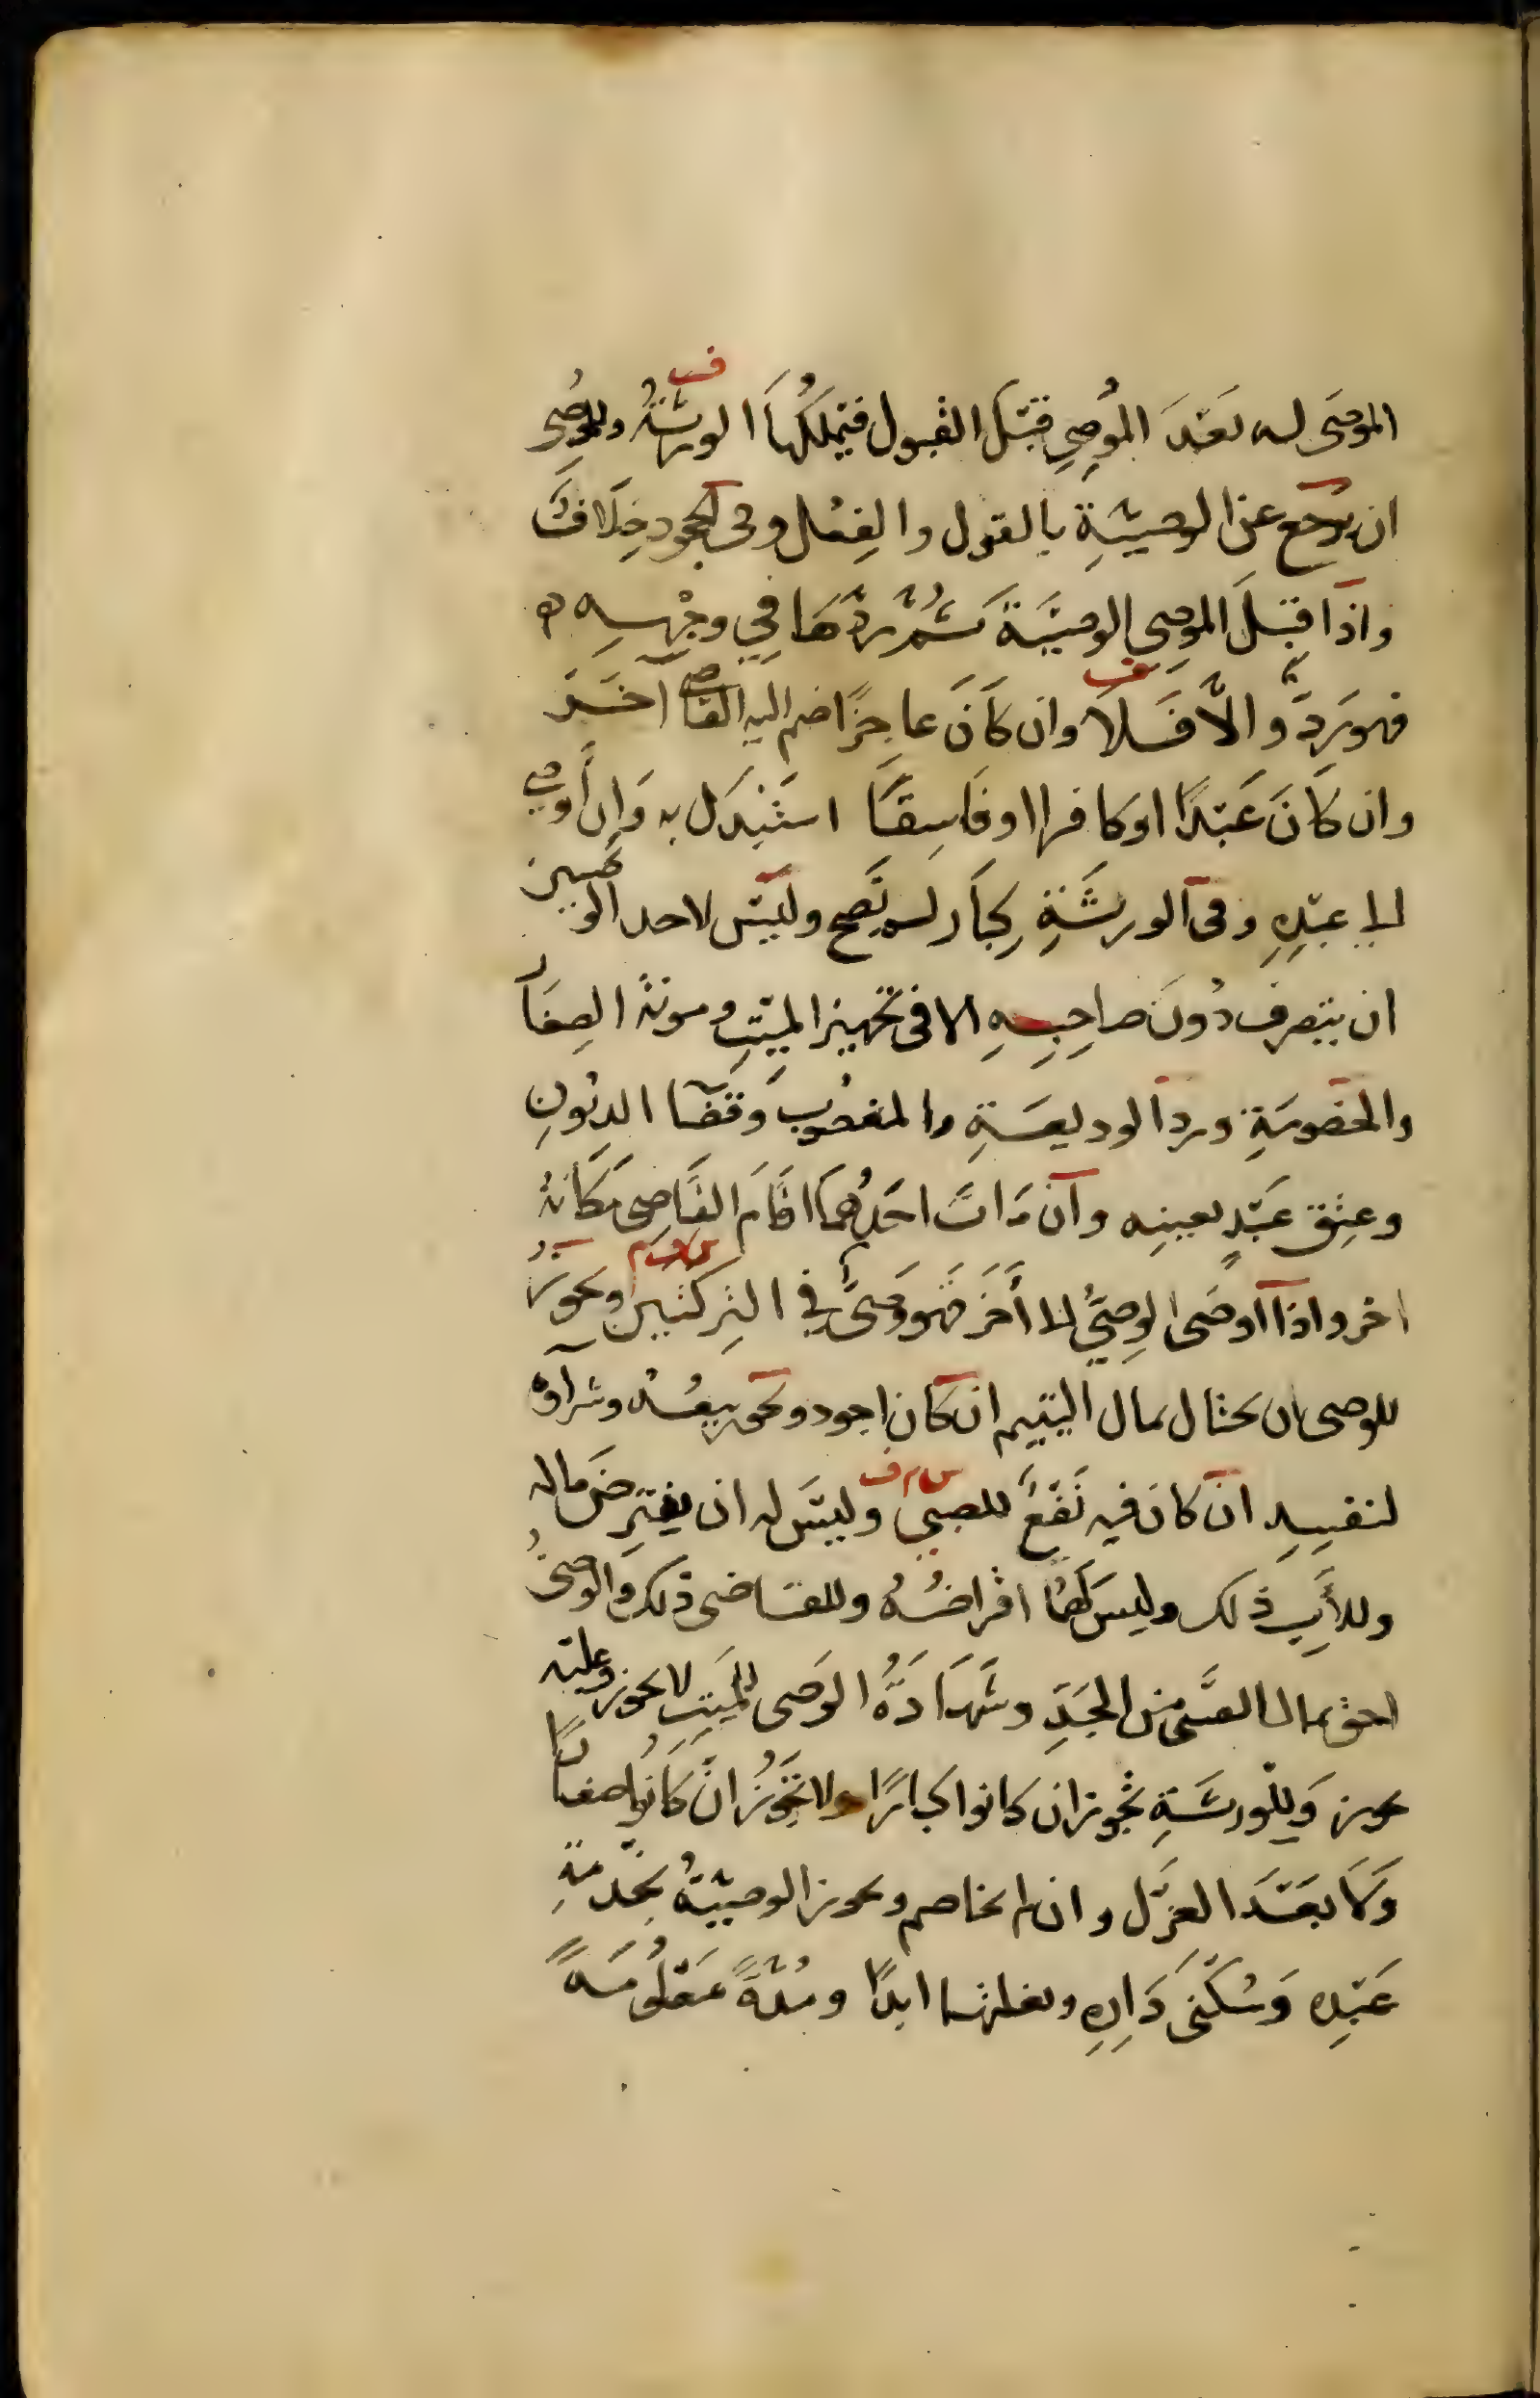 الموصَى له بَعْدَ المُوصِي قَبْلَ القبول فيَمْلِكُهَا الورثةُ وللمُوصِى
ان يرجع عن الوصيّةِ بالقول والفِعْل وفى الجحود خِلافٌ
واذا قَبِلَ الموصى الوصيّةَ ثُمَّ ردَّهَا فِي وجْهِه
فهو رَدٌّ وَ الاَّ فَلاَ وان كَانَ عاجِزًا ضم اليه القاضى آخَرَ
وان كَانَ عَبْدًا اوكافرا اوفَاسِقًا استُبْدِلَ به وَإن أوصى
الى عبْدِهِ وفى الورثَةِ كِبَار لم تَصِح وليْسَ لاحد الوصيين
ان يتصرف دُونَ صاحِبِهِ الا فى تجهيز الميّتِ ومونة الصِغَار
والخصومَةِ ورد الوديعَةِ والمغصُوبِ وَقضَا الديُونِ
وعِتْق عَبْدٍ بعينِه وان مَاتَ احَدُهُمَا اقَامَ القَاضِى مَكَانَهُ
اخر واذا اوصَى الوصِيُّ الى أخَرَ فهو وَصِيٌّ فِي التركتين ويجوزُ
للوصى ان يحتال بمال اليتيم ان كان اجود ويجوز بيعُهُ وشراوهُ
لنفسِهِ ان كان فيه نَفْعٌ للصبِي وليْسَ له ان يقْترِضَ ماله
وللأَبِ ذلك وليسَ لَهُمَا اقْراضُهُ وللقاضى ذلك والوصىُّ
احق بمال الصَّبِى من الجَدِّ وشَهَادَةُ الوَصى للمَيّتِ لا تجوز وعليْه
تجوز وَلِلْورثَةِ تجُوزُ ان كانوا كبارًا ولا تَجُوزُ انْ كَانُوا صغارًا
وَكَمَا بعْدَ العزْل وان لم يخاصم وتجوز الوصيّةُ بخِدْمَةِ
عَبْدِه وَسُكْنَى دَارِهِ وبغلتهما ابدًا ومُدَّةً مَعْلُومَةً